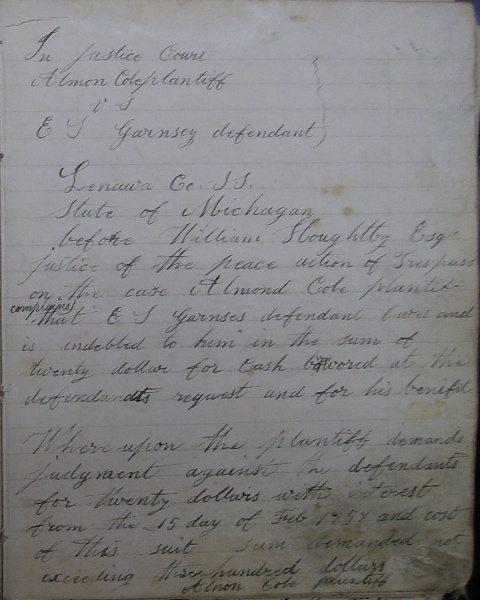 In Justice Court
Almon Cole plantiff
v S
E S Garnsey defendant
Lenawa Co. S.S.
State of Michagan
before William Houghtby Esq
justice of the peace action of Trespass
on the case Almond Cole plantiff
complains
that E S Garnses defendant owes and
is indebted to him in the sum of
twenty dollar for Cash borowed at the
defendants request and for his benefit
Where upon the plantiff demands
judgment against the defendants
for twenty dollars with interest
from the 15 day of Feb and cost
of this suit sum demanded not
exceeding three hundred dollars
Almon Cole plantiff